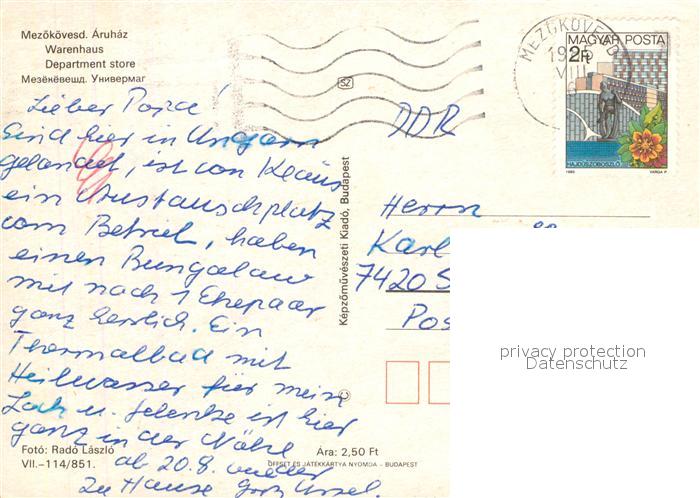 Mezőkövesd. Áruház
Warenhaus
Department store
Мезёкёвешд. Универмаг
SZ
MEZŐKÖVESD
VIII
MAGYAR POSTA
2Ft
HAJDÚSZOBOSZLÓ
1985 VARGA P.
Lieber
Sind hier in Ungarn
gelandet, ist von Klaus
ein Austauschplatz
vom Betrieb, haben
einen Bungalow
mit noch 1 Ehepaar
ganz herrlich. Ein
Thermalbad mit
Heilwasser für mein
u. Gelenke ist hier
ganz in der Nähe
ab 20.8. wieder
Zu Hause
DDR
Herrn
Karl
7420 S
Pos
Képzőművészeti Kiadó, Budapest
privacy protection
Datenschutz
Fotó: Radó László
VII.–114/851.
Ára: 2,50 Ft
OFFSET ÉS JÁTÉKKÁRTYA NYOMDA – BUDAPEST